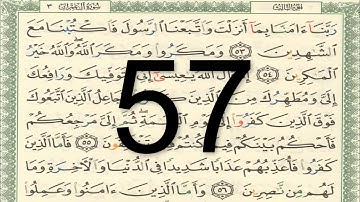 الجزء الثالث سورة آل عمران ٣
رَبَّنَآ ءَامَنَّا بِمَآ أَنزَلْتَ وَٱتَّبَعْنَا ٱلرَّسُولَ فَٱكْتُبْنَا مَعَ
ٱلشَّٰهِدِينَ ٥٣ وَمَكَرُوا۟ وَمَكَرَ ٱللَّهُ وَٱللَّهُ خَيْرُ
ٱلْمَٰكِرِينَ ٥٤ قَالَ ٱللَّهُ يَٰعِيسَىٰٓ إِنِّى مُتَوَفِّيكَ وَرَافِعُكَ
إِلَىَّ وَمُطَهِّرُكَ مِنَ ٱلَّذِينَ جَاعِلُ ٱلَّذِينَ ٱتَّبَعُوكَ
فَوْقَ ٱلَّذِينَ كَفَرُوٓا۟ ثُمَّ إِلَىَّ مَرْجِعُكُمْ
فَأَحْكُمُ بَيْنَكُمْ فِيمَا كُنتُمْ ٥٥ فَأَمَّا ٱلَّذِينَ
كَفَرُوا۟ فَأُعَذِّبُهُمْ عَذَابًا شَدِيدًا فِى ٱلدُّنْيَا وَٱلْءَاخِرَةِ وَمَا
لَهُم مِّن نَّٰصِرِينَ ٥٦ وَأَمَّا ٱلَّذِينَ ءَامَنُوا۟ وَعَمِلُوا۟
57